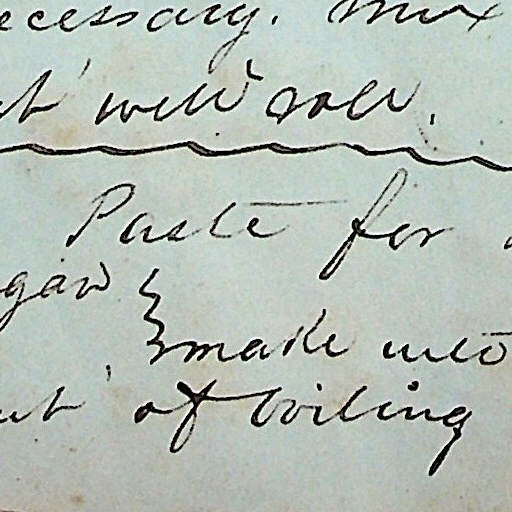 ecessary. Mix
it will roll.
Paste for
gar
make into
of boiling